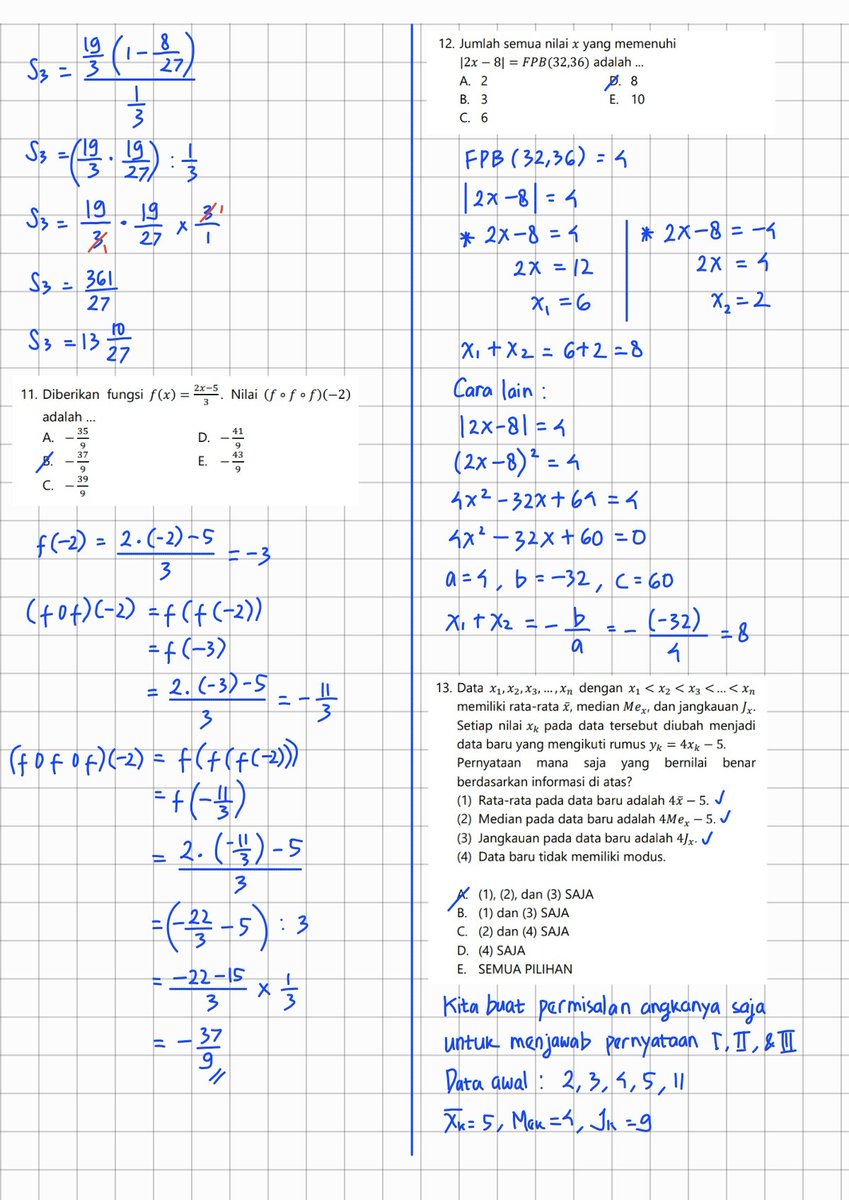 S₃ = 19/3 (1 − 8/27) / 1/3
S₃ = (19/3 · 19/27) : 1/3
S₃ = 19/3 1 · 19/27 × 3 1/1
S₃ = 361/27
S₃ = 13 10/27
11. Diberikan fungsi f(x) = 2x−5/3. Nilai (f ∘ f ∘ f)(−2)
adalah ...
A. −35/9 D. −41/9
B. −37/9 E. −43/9
C. −39/9
f(-2) = 2.(-2)-5/3 = -3
(fof)(-2) = f(f(-2))
= f(-3)
= 2.(-3)-5/3 = - 11/3
(fofof)(-2) = f(f(f(-2)))
= f(-11/3)
= 2.(-11/3)-5/3
= (-22/3 - 5) : 3
= -22-15/3 × 1/3
= - 37/9 //
12. Jumlah semua nilai x yang memenuhi
|2x − 8| = FPB(32,36) adalah ...
A. 2 D. 8
B. 3 E. 10
C. 6
FPB (32,36) = 4
|2x-8| = 4
* 2x-8 = 4 * 2x-8 = -4
2x = 12 2x = 4
x₁ = 6 x₂ = 2
x₁ + x₂ = 6+2 = 8
Cara lain :
|2x-8| = 4
(2x-8)² = 4
4x² - 32x + 64 = 4
4x² - 32x + 60 = 0
a = 4, b = -32, c = 60
x₁ + x₂ = - b/a = - (-32)/4 = 8
13. Data x₁, x₂, x₃, ..., xₙ dengan x₁ < x₂ < x₃ < ... < xₙ
memiliki rata-rata x̄, median Meₓ, dan jangkauan Jₓ.
Setiap nilai xₖ pada data tersebut diubah menjadi
data baru yang mengikuti rumus yₖ = 4xₖ − 5.
Pernyataan mana saja yang bernilai benar
berdasarkan informasi di atas?
(1) Rata-rata pada data baru adalah 4x̄ − 5. ✓
(2) Median pada data baru adalah 4Meₓ − 5. ✓
(3) Jangkauan pada data baru adalah 4Jₓ. ✓
(4) Data baru tidak memiliki modus.
A. (1), (2), dan (3) SAJA
B. (1) dan (3) SAJA
C. (2) dan (4) SAJA
D. (4) SAJA
E. SEMUA PILIHAN
Kita buat permisalan angkanya saja
untuk menjawab pernyataan I, II, & III
Data awal : 2, 3, 4, 5, 11
x̄ₖ = 5, Meₖ = 4, Jₖ = 9